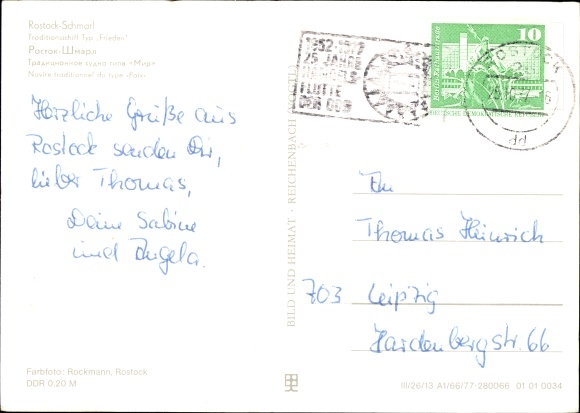 Rostock-Schmarl
Traditionsschiff Typ „Frieden"
Росток-Шмарл
Традиционное судно типа «Мир»
Navire traditionnel du type «Paix»
Herzliche Grüße aus
Rostock senden Dir,
lieber Thomas,
Deine Sabine
und Angela.
Farbfoto: Rockmann, Rostock
DDR 0,20 M
BILD UND HEIMAT · REICHENBACH
1952-1977
25 JAHRE
HANDELS
FLOTTE
DER DDR
10
DEUTSCHE DEMOKRATISCHE REPUBLIK
ROSTOCK
An
Thomas Heinrich
703 Leipzig
Hardenbergstr. 66
III/26/13 A1/66/77 280066 01 01 0034